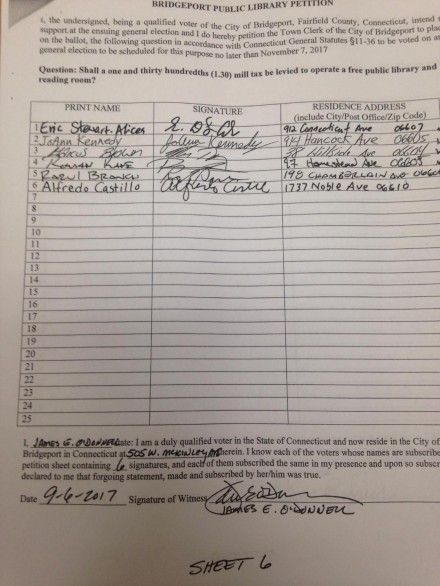 BRIDGEPORT PUBLIC LIBRARY PETITION
I, the undersigned, being a qualified voter of the City of Bridgeport, Fairfield County, Connecticut, intend
support at the ensuing general election and I do hereby petition the Town Clerk of the City of Bridgeport to pla
on the ballot, the following question in accordance with Connecticut General Statutes §11-36 to be voted on at
general election to be scheduled for this purpose no later than November 7, 2017
Question: Shall a one and thirty hundredths (1.30) mill tax be levied to operate a free public library and
reading room?
PRINT NAME SIGNATURE RESIDENCE ADDRESS
(include City/Post Office/Zip Code)
1 Eric Stewart-Alicea 912 Connecticut Ave 06607
2 JoAnn Kennedy JoAnn Kennedy 914 Hancock Ave 06605
3 Brown 38 Ave
4 97 Homestead Ave 06605
5 198 CHAMBERLAIN AVE
6 Alfredo Castillo 1737 Noble Ave 06610
7
8
9
10
11
12
13
14
15
16
17
18
19
20
21
22
23
24
25
I, JAMES E. O'DONNELL state: I am a duly qualified voter in the State of Connecticut and now reside in the City of
Bridgeport in Connecticut at 505 W. MCKINLEY AVE therein. I know each of the voters whose names are subscribe
petition sheet containing 6 signatures, and each of them subscribed the same in my presence and upon so subscr
declared to me that forgoing statement, made and subscribed by her/him was true.
Date 9-6-2017 Signature of Witness
JAMES E. O'DONNELL
SHEET 6